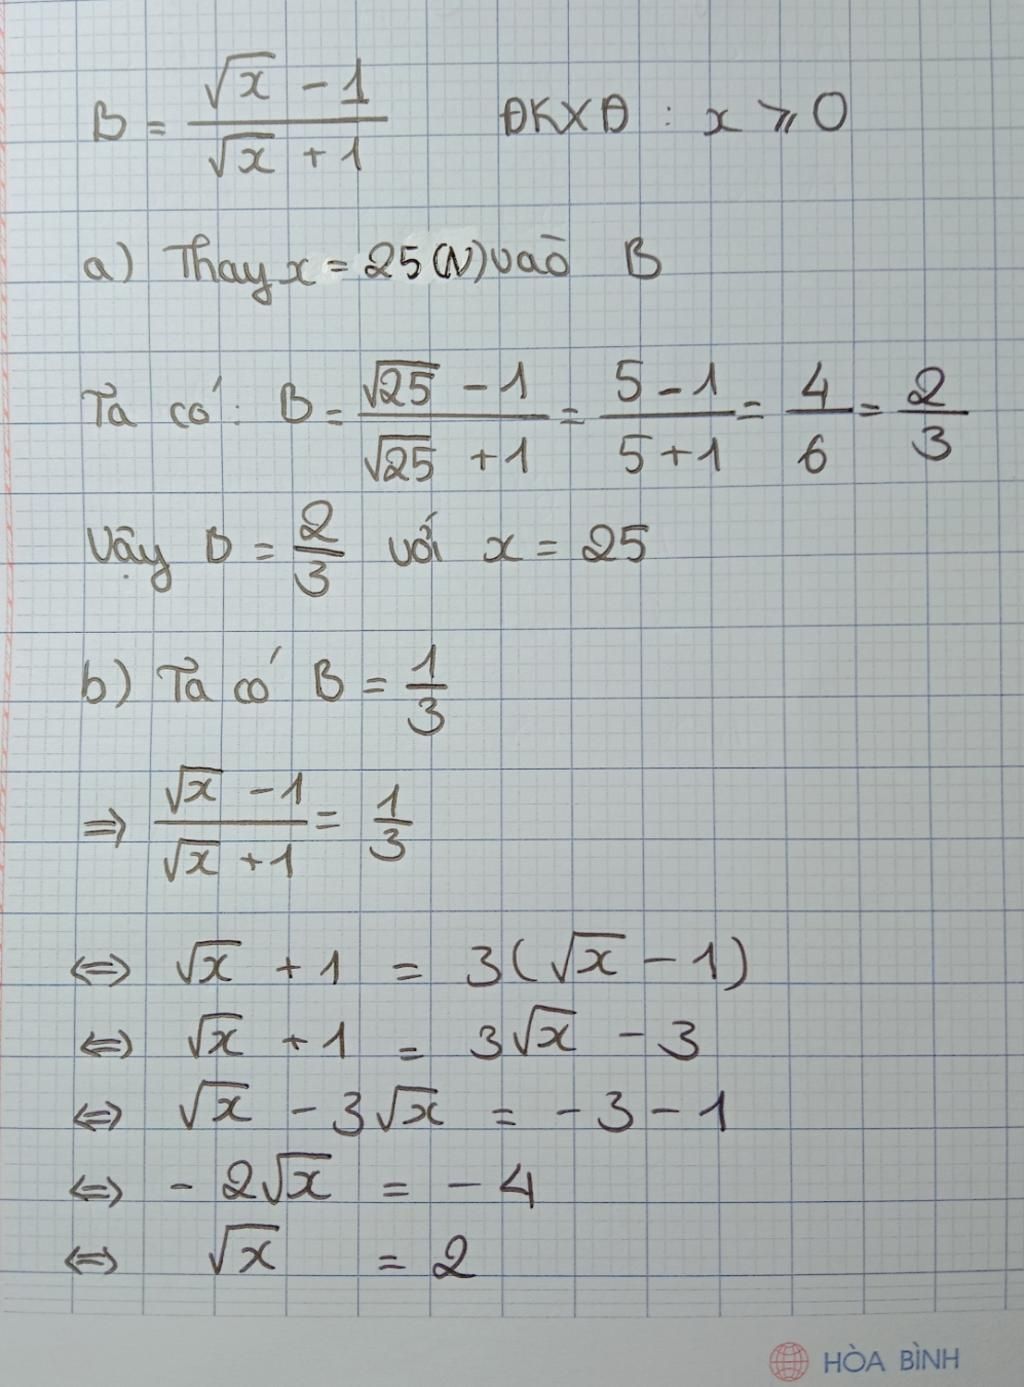 B = \frac{\sqrt{x} - 1}{\sqrt{x} + 1} ĐKXĐ : x ⩾ 0
a) Thay x = 25 (N) vào B
Ta có: B = \frac{\sqrt{25} - 1}{\sqrt{25} + 1} = \frac{5 - 1}{5 + 1} = \frac{4}{6} = \frac{2}{3}
Vậy B = \frac{2}{3} với x = 25
b) Ta có B = \frac{1}{3}
⇒ \frac{\sqrt{x} - 1}{\sqrt{x} + 1} = \frac{1}{3}
⇔ \sqrt{x} + 1 = 3(\sqrt{x} - 1)
⇔ \sqrt{x} + 1 = 3\sqrt{x} - 3
⇔ \sqrt{x} - 3\sqrt{x} = -3 - 1
⇔ -2\sqrt{x} = -4
⇔ \sqrt{x} = 2
HÒA BÌNH